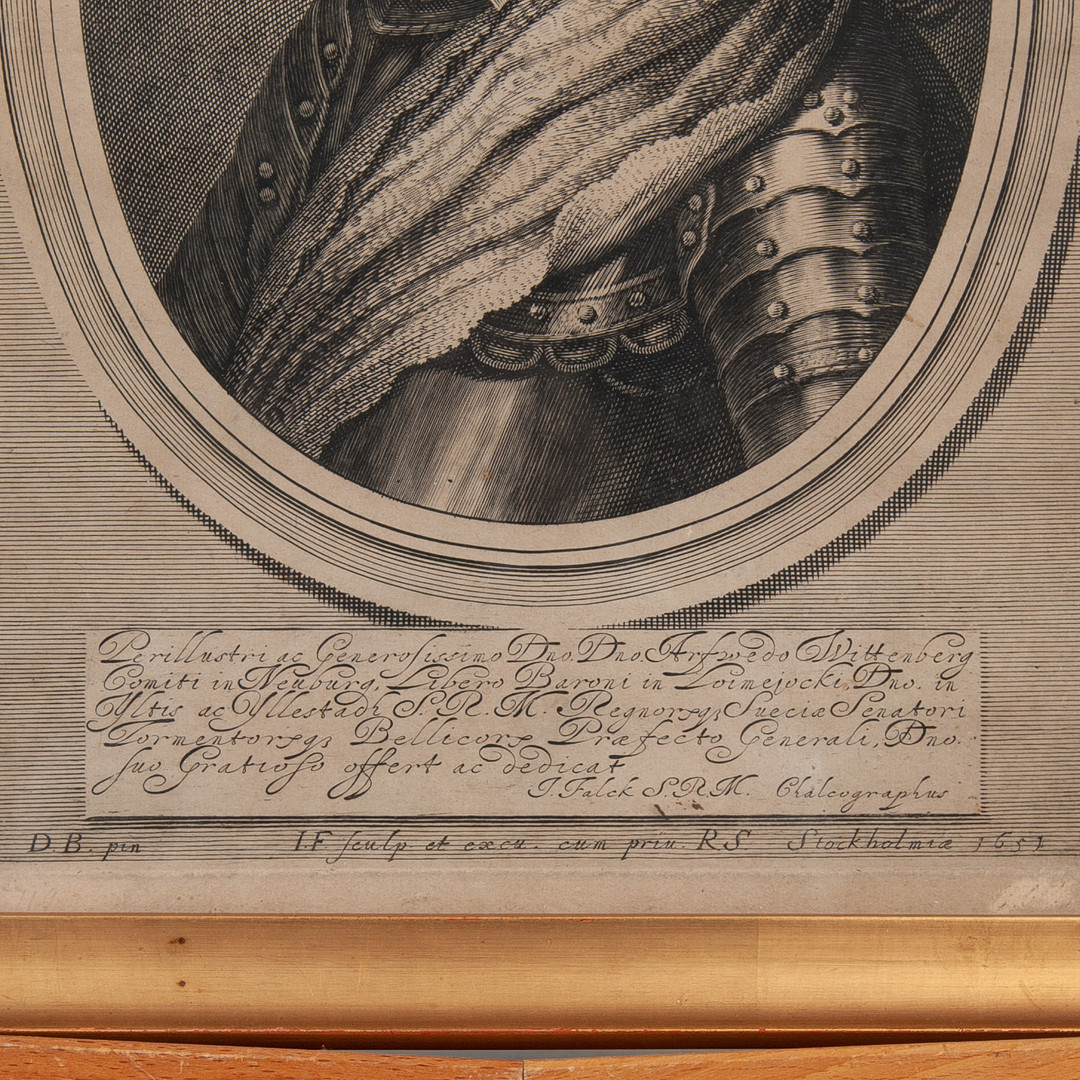 Perillustri ac Generosissimo Dno. Dno. Arfwedo Wittenberg
Comiti in Neuburg, Libero Baroni in Loimejocki, Dno. in
Yltis ac Yllestadt S. R. M. Regnorꝝq; Sueciæ Senatori
Tormentorꝝq; Bellicorꝝ Præfecto Generali, Dno.
suo Gratioso offert ac dedicat
J. Falck S. R. M. Chalcographus
D. B. pin I. F sculp et excu. cum priu. R S Stockholmiæ 1651